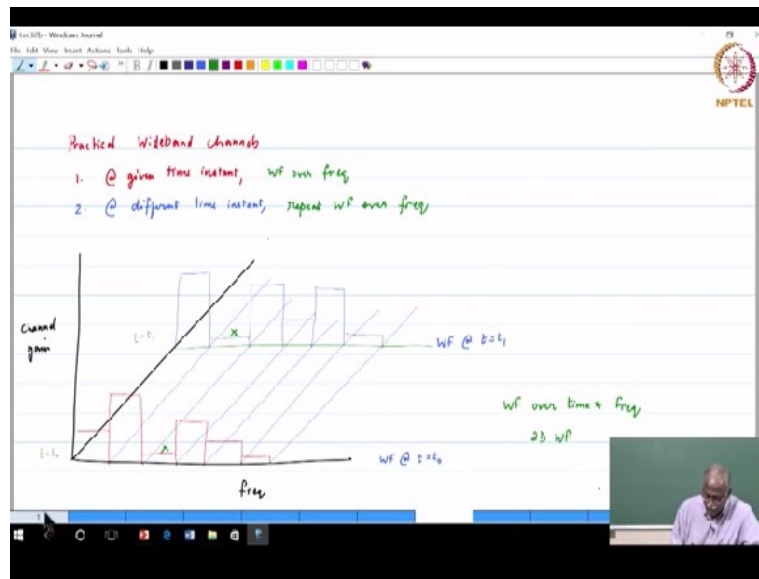 Lec32b - Windows Journal
File Edit View Insert Actions Tools Help
NPTEL
Practical Wideband channels
1. @ given time instant, WF over freq
2. @ different time instant, repeat WF over freq
Channel
gain
t=t₁
x
WF @ t=t₁
WF over time + freq
2D WF
t=t₀
x
WF @ t=t₀
freq
1